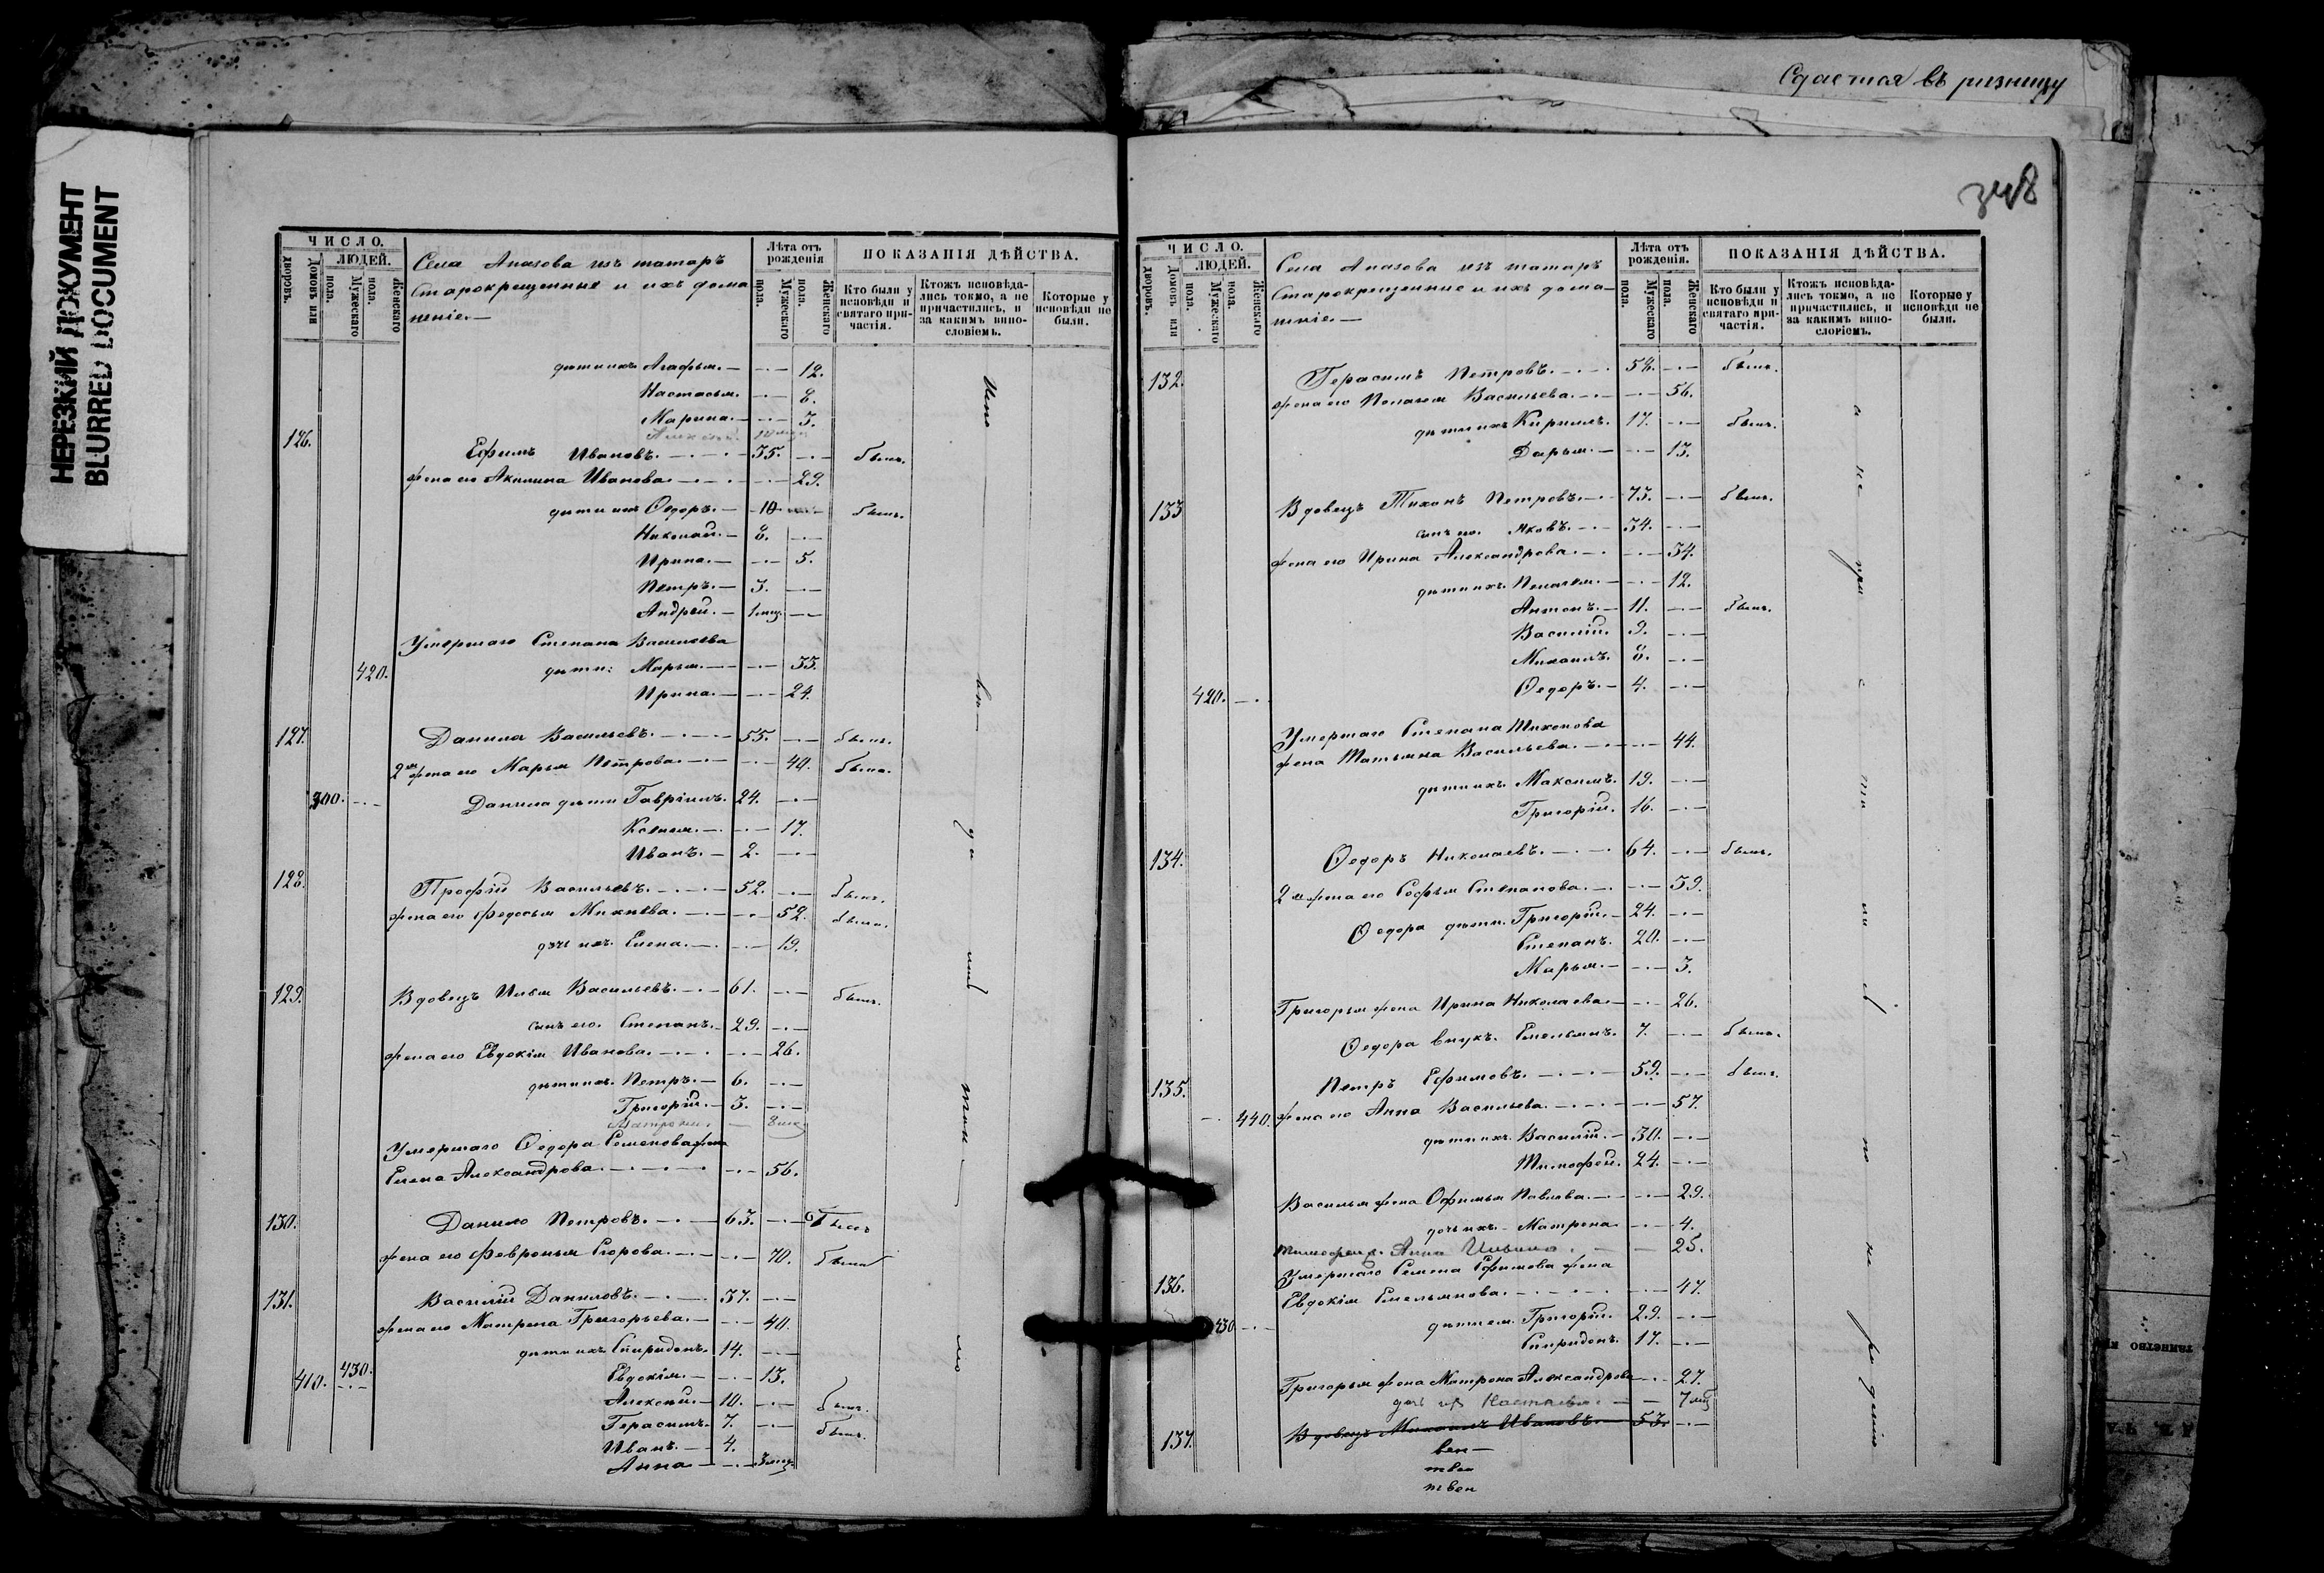 НЕРЕЗКИЙ ДОКУМЕНТ
BLURRED DOCUMENT
Сдается въ ризницу
348
ЧИСЛО.
ЛЮДЕЙ.
Домовъ или дворовъ.
Мужескаго пола.
Женскаго пола.
Села Апазова изъ татаръ
Старокрещенные и ихъ дома
шніе.—
Лѣта отъ рожденія
Мужескаго пола.
Женскаго пола.
ПОКАЗАНІЯ ДѢЙСТВА.
Кто были у исповѣди и святаго при-частія.
Ктожъ исповѣда-лись токмо, а не причастились, и за какимъ вино-словіемъ.
Которые у исповѣди не были.
дѣти ихъ Агафья.— —·— 12.
Настасья. —·— 8.
Марина.— —·— 3.
Алексѣй.
126. Ефимъ Ивановъ.—·—·— 35. —·— былъ.
жена его Акилина Иванова.—·—·— 29.
дѣти ихъ Ѳедоръ.— 10 былъ.
Николай.— 8. —·—
Ирина.— —·— 5.
Петръ.— 3. —·—
Андрей.— 1 мѣс. —·—
Умершаго Степана Васильева
420. дѣти: Марья.— —·— 33.
Ирина.— —·— 24.
127. Данила Васильевъ.—·—·— 55. —·— былъ.
2я жена его Марья Петрова.—·— —·— 40. была.
300. —·— Данила дѣти Гавріилъ. 24. —·—
Ксенія.—·— —·— 17.
Иванъ.— 2. —·—
128. Трофій Васильевъ.—·—·— 52. —·— былъ.
жена его Федосья Михѣева.—·— —·— 52. была.
дочь ихъ Елена.—·— —·— 19.
129. Вдовецъ Илья Васильевъ.—·— 61. —·— былъ.
сынъ его. Степанъ.— 29. —·—
жена его Евдокія Иванова.—·— —·— 26.
дѣти ихъ. Петръ.— 6. —·—
Григорій.— 3. —·—
Матрона. — 8 мѣс
Умершаго Ѳедора Семенова жена
Елена Александрова.—·—·— —·— 56.
130. Данило Петровъ.—·— 63. —·— Былъ
жена его Февронья Егорова.—·— —·— 70. была
131. Василій Даниловъ.—·— 37. —·—
жена его Матрена Григорьева.— —·— 40.
дѣти ихъ Спиридонъ. 14. —·—
410. 430. Евдокія.— —·— 13.
Алексѣй.— 10. —·— былъ.
Герасимъ. 7. —·— былъ.
Иванъ.— 4.
Анна — —·— 3 мѣс
ЧИСЛО.
ЛЮДЕЙ.
Домовъ или дворовъ.
Мужескаго пола.
Женскаго пола.
Села Апазова изъ татаръ
Старокрещенные и ихъ дома—
шніе.—
Лѣта отъ рожденія.
Мужескаго пола.
Женскаго пола.
ПОКАЗАНІЯ ДѢЙСТВА.
Кто были у исповѣди и святаго при-частія.
Ктожъ исповѣда-лись токмо, а не причастились, и за какимъ вино-словіемъ.
Которые у исповѣди не были.
132. Герасимъ Петровъ.—·—·— 54. —·— былъ.
жена его Пелагея Васильева.—·— —·— 56.
дѣти ихъ Кириллъ. 17. —·— былъ.
Дарья.— —·— 13.
133 Вдовецъ Тихонъ Петровъ.—·— 73. —·— былъ.
сынъ его. Яковъ.—·— 34. —·—
жена его Ирина Александрова.—·— —·— 34.
дѣти ихъ. Пелагея.— —·— 12.
Антонъ.— 11. —·— былъ.
Василій. 9. —·—
Михаилъ. 8. —·—
420. —·— Ѳедоръ.— 4. —·—
Умершаго Степана Тихонова
жена Татьяна Васильева.—·— —·— 44.
дѣти ихъ. Максимъ. 19. —·—
Григорій. 16. —·—
134. Ѳедоръ Николаевъ.—·—·— 64. —·— былъ.
2я жена его Софья Степанова.—·— —·— 39.
Ѳедора дѣти. Григорій.— 24. —·—
Степанъ. 20. —·—
Марья.— —·— 3.
Григорья жена Ирина Николаева.— —·— 26.
Ѳедора внукъ. Емельянъ. 7. —·— былъ.
135. Петръ Ефимовъ.—·—·— 59. —·— былъ.
—·— 440. жена его Анна Васильева.—·—·— —·— 57.
дѣти ихъ. Василій.— 30. —·—
Тимофей. 24. —·—
Василья жена Офимья Павлова.—·— —·— 29.
дочь ихъ.— Матрена —·— 4.
Тимофея ж. Анна Ильина. — — 25.
136. Умершаго Семена Ефимова жена
Евдокія Емельянова.—·—·— —·— 47.
430 —·— дѣти ея. Григорій. 29. —·—
Спиридонъ. 17. —·—
Григорья жена Матрона Александрова —·— 27.
дочь их Настасья. — — 7 мѣс
137. Вдовецъ Михаилъ Ивановъ.— 53. —·—
вен—
твен
твен